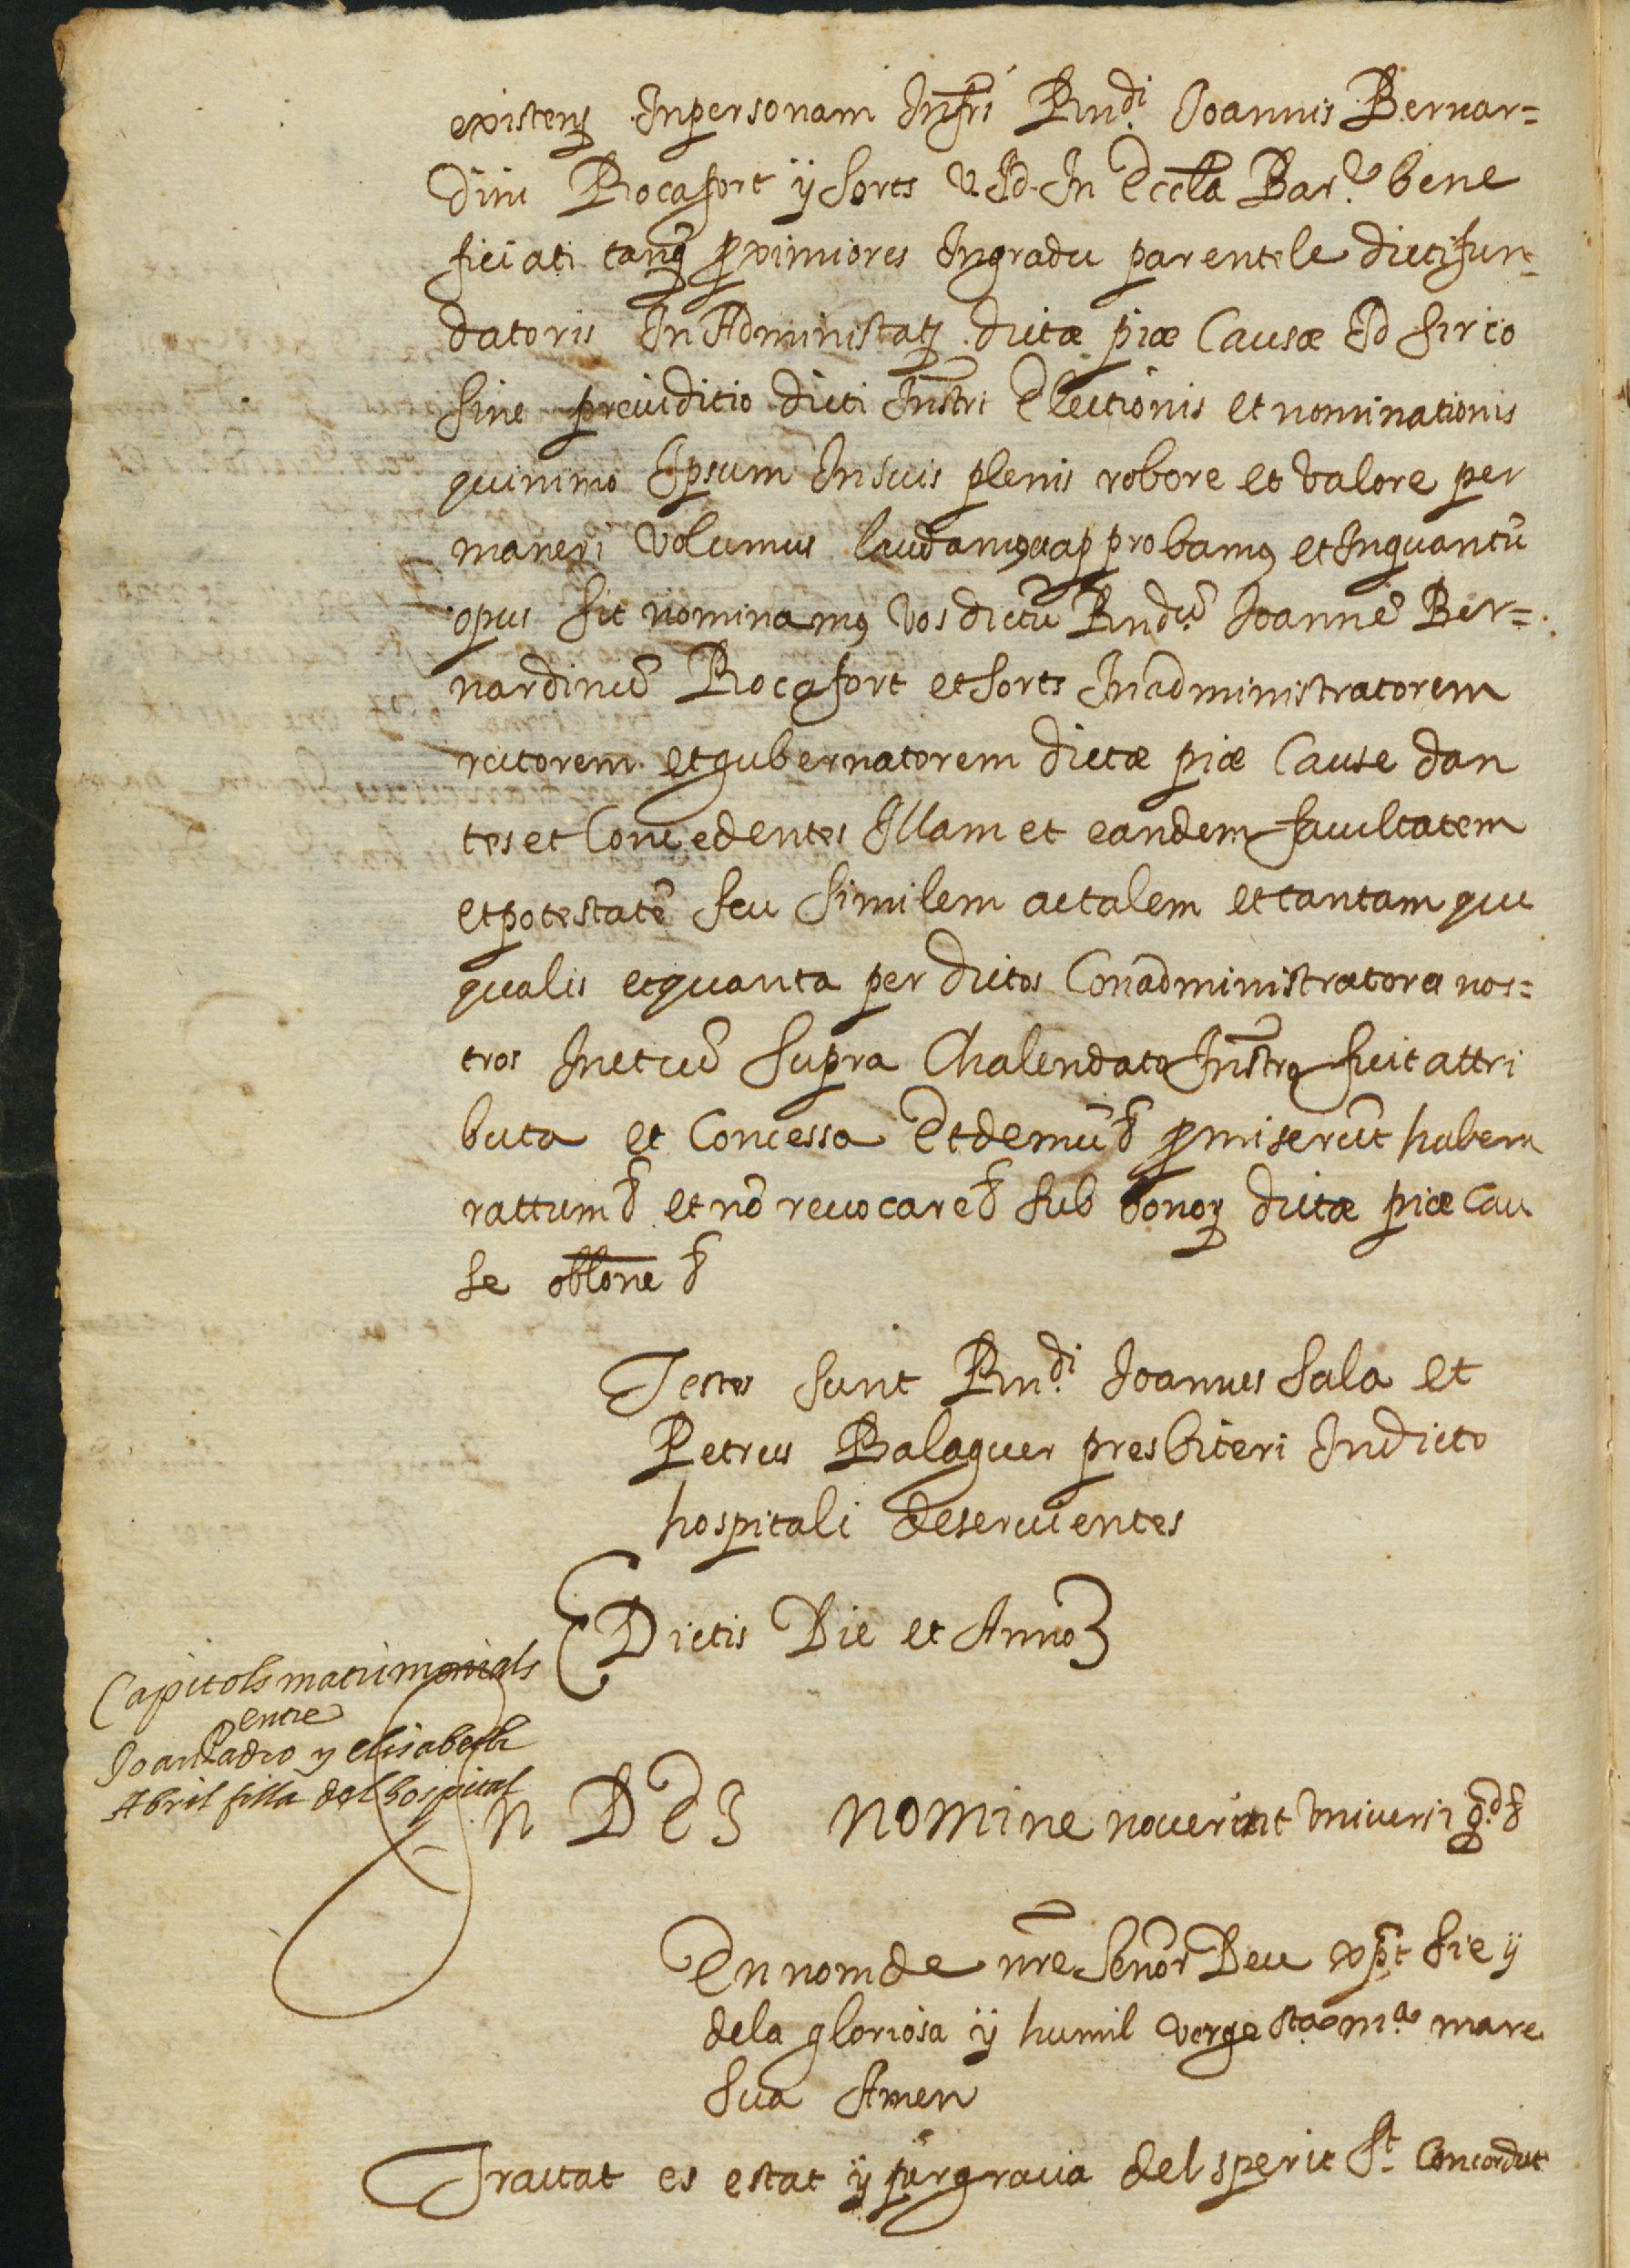 existens Inpersonam Infri Rndi. Joannis Bernar=
dini Rocafort ÿ Sorts V. Jd. In Eccla Bar.e bene
ficiati tanq̃ proximiores Ingradu parentele dicti fun=
datoris In Administratȝ dictæ piæ Causæ Id circo
sine preiuditio dicti Instri Electionis et nominationis
quinimo Ipsum In suis plenis robore et valore per
maneri volumus laudamus et approbamus et Inquantũ
opus sit nominamus vos dictũ Rndũ. Joannẽ Ber=
nardinũ Rocafort et Sorts In administratorem
rectorem et gubernatorem dictæ piæ Cause dan
tes et Concedentes Illam et eandem facultatem
et potestatẽ seu similem ac talem et tantam que
qualis et quanta per dictos Conadministratores nos=
tros In et cũ supra Chalendato Instro fuit attri
buta et Concessa Et demũ & promiserũt habere
rattum & et nõ reuocare & sub bonoȝ dictæ piæ Cau
se oblone &
Testes sunt Rndi. Joannes Sala et
Petrus Balaguer presbiteri In dicto
hospitali deseruientes
Dictis Die et Anno
Capitols matrimonials
entre
Joan Padro y Elisabeth
Abril filla del hospital
In DEI nomine nouerint vniuersi qd &
En nom de nre Señor Deu xp̃t sie ÿ
dela gloriosa ÿ humil verge sta m.a mare
sua Amen
Tractat es estat ÿ per gracia del sperit St. Concordat